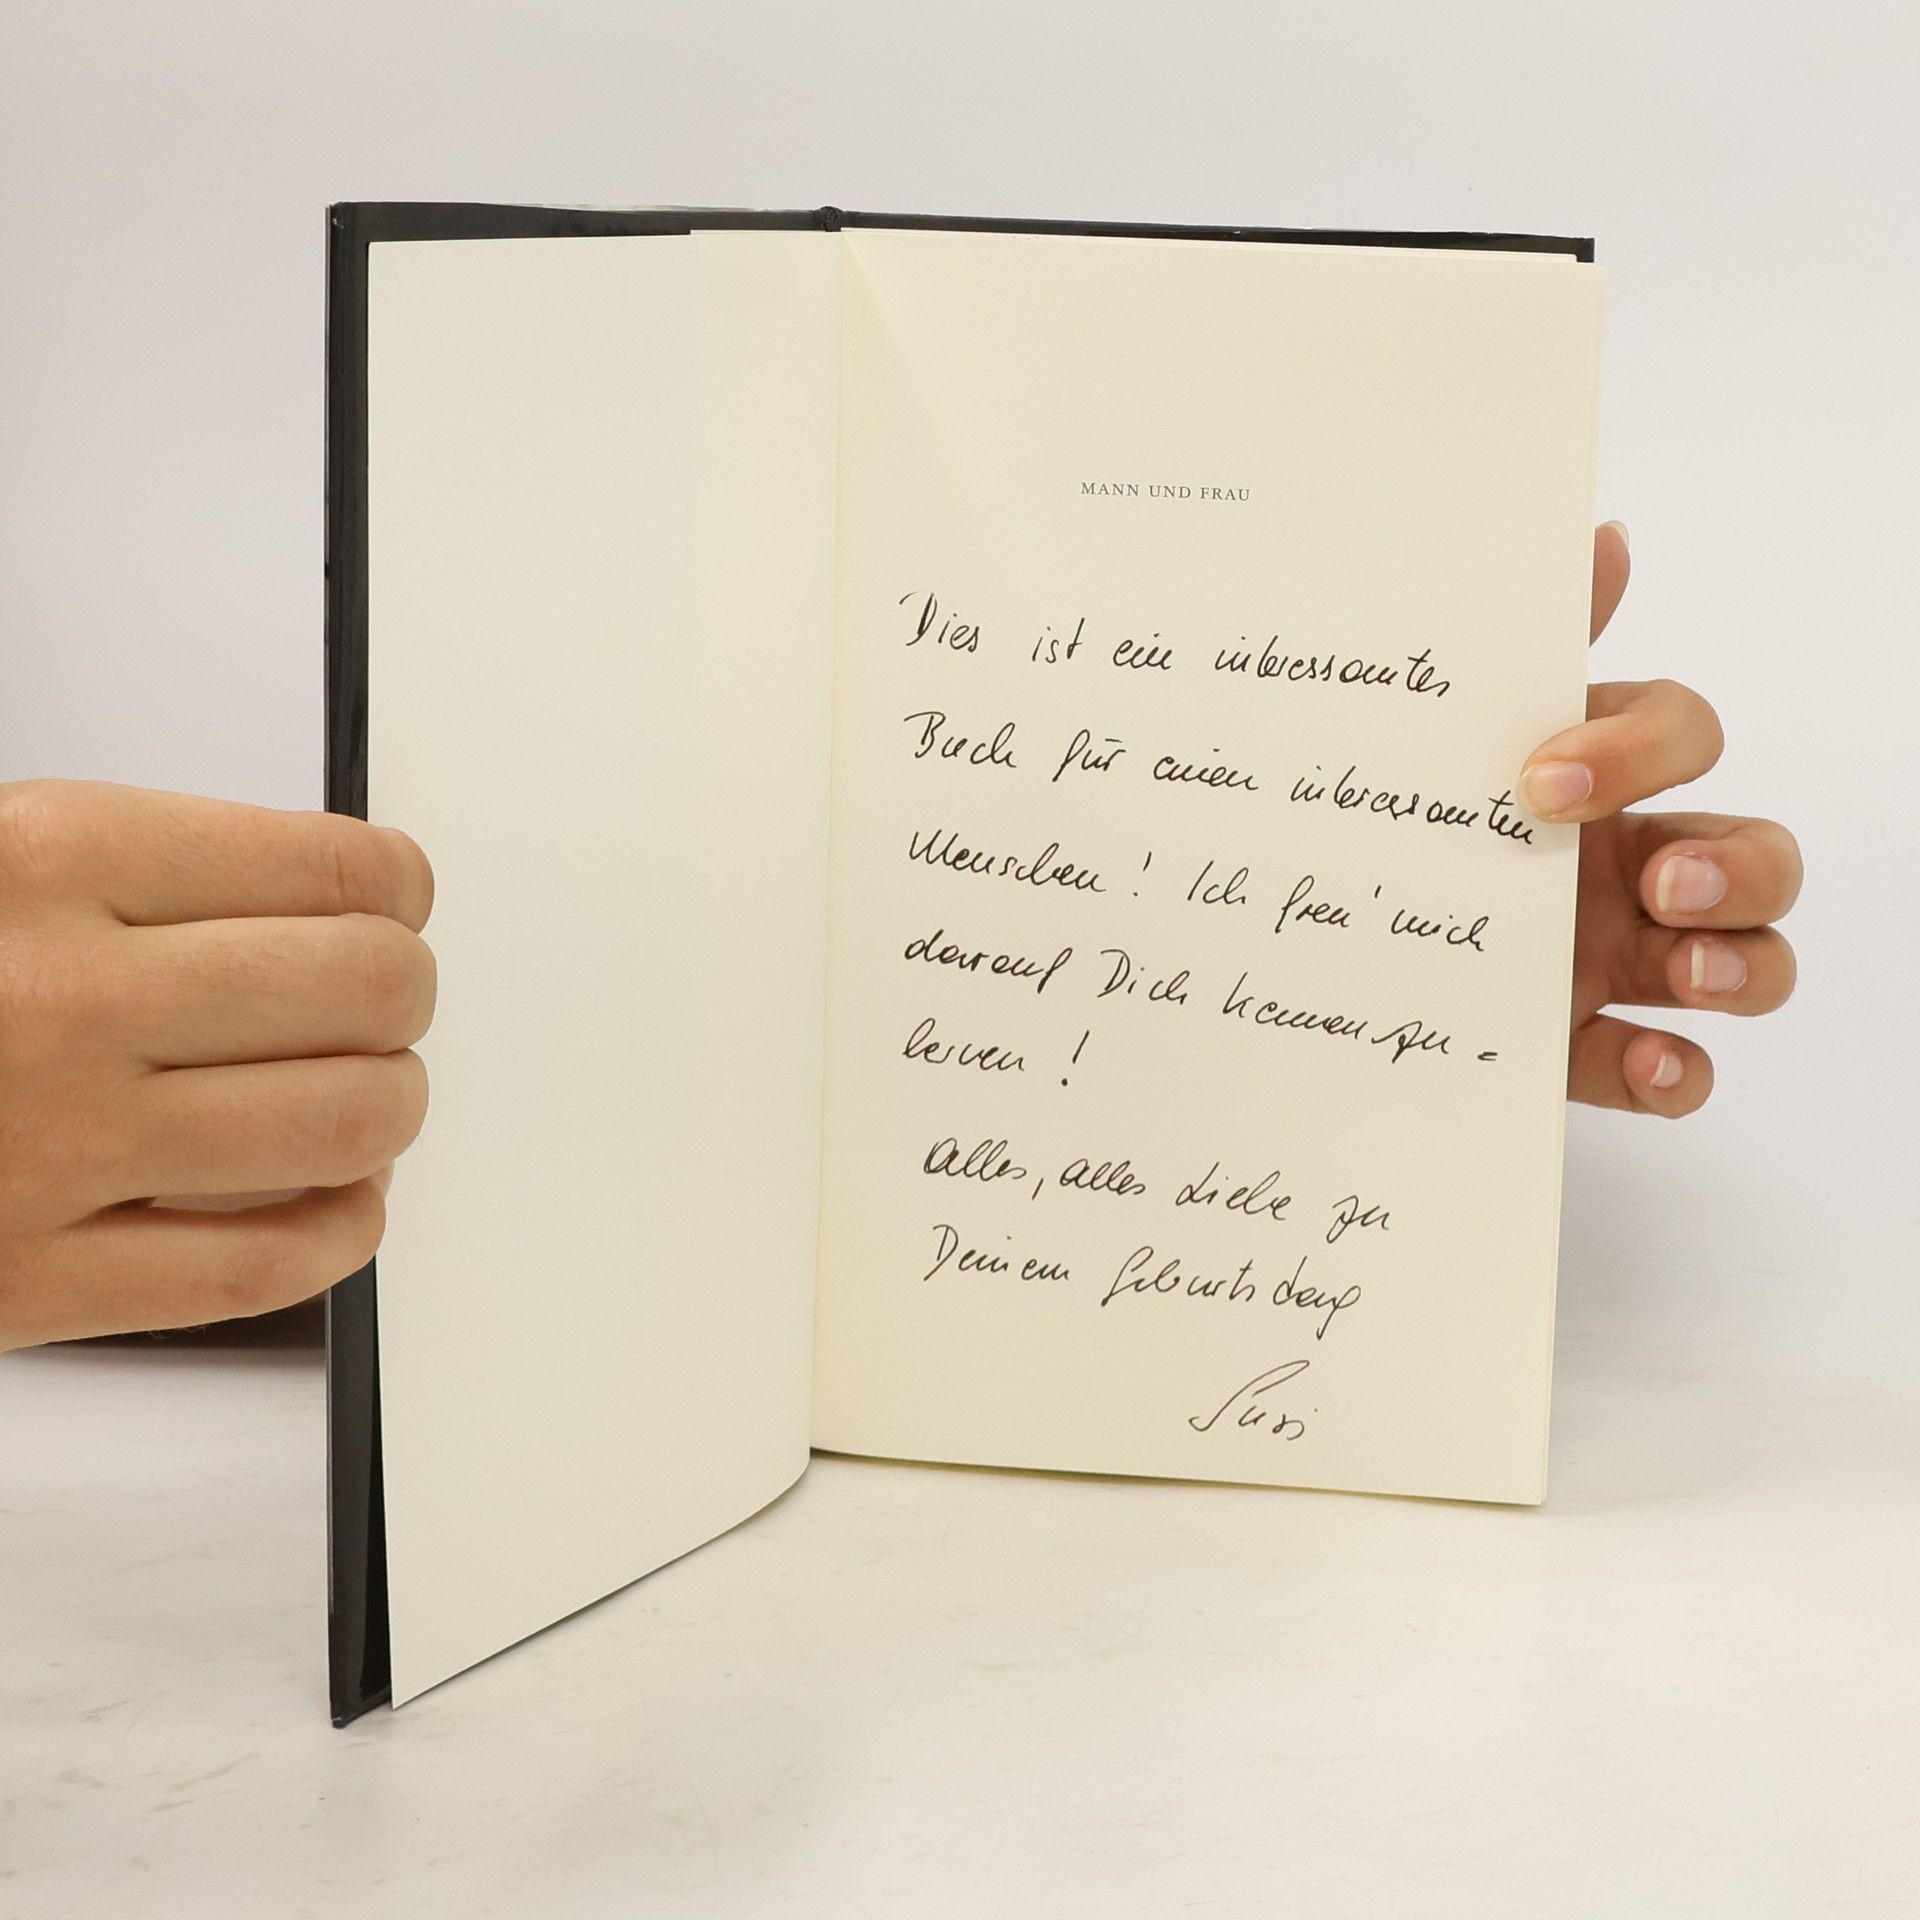 MANN UND FRAU
Dies ist ein interessantes
Buch für einen interessanten
Menschen! Ich freu' mich
darauf Dich kennenzu=
lernen!
Alles, alles Liebe zu
Deinem Geburtstag
Susi